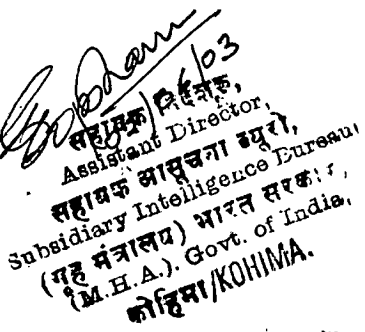 सहायक निदेशक,
Assistant Director,
सहायक आसूचना ब्यूरो,
Subsidiary Intelligence Bureau,
(गृह मंत्रालय) भारत सरकार,
(M.H.A.). Govt. of India,
कोहिमा/KOHIMA.